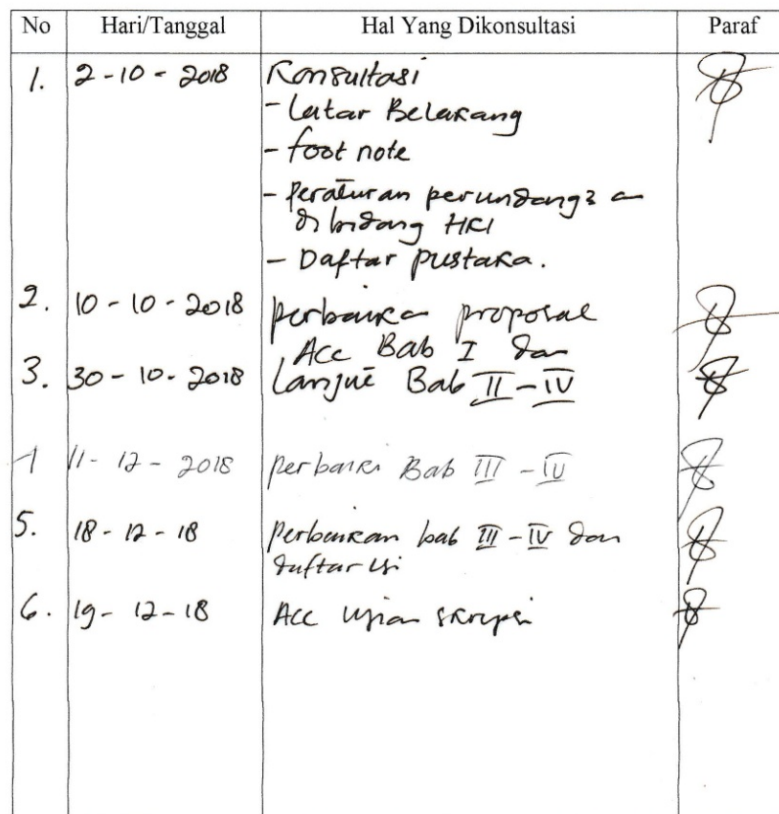 No Hari/Tanggal Hal Yang Dikonsultasi Paraf
1. 2-10-2018 Konsultasi
- Latar Belakang
- foot note
- Peraturan perundang2an
di bidang HKI
- Daftar pustaka.
2. 10-10-2018 perbaikan proposal
Acc Bab I dan
3. 30-10-2018 Lanjut Bab II-IV
11-12-2018 perbaiki Bab III-IV
5. 18-12-18 Perbaikan bab III-IV dan
daftar isi
6. 19-12-18 Acc Ujian skripsi